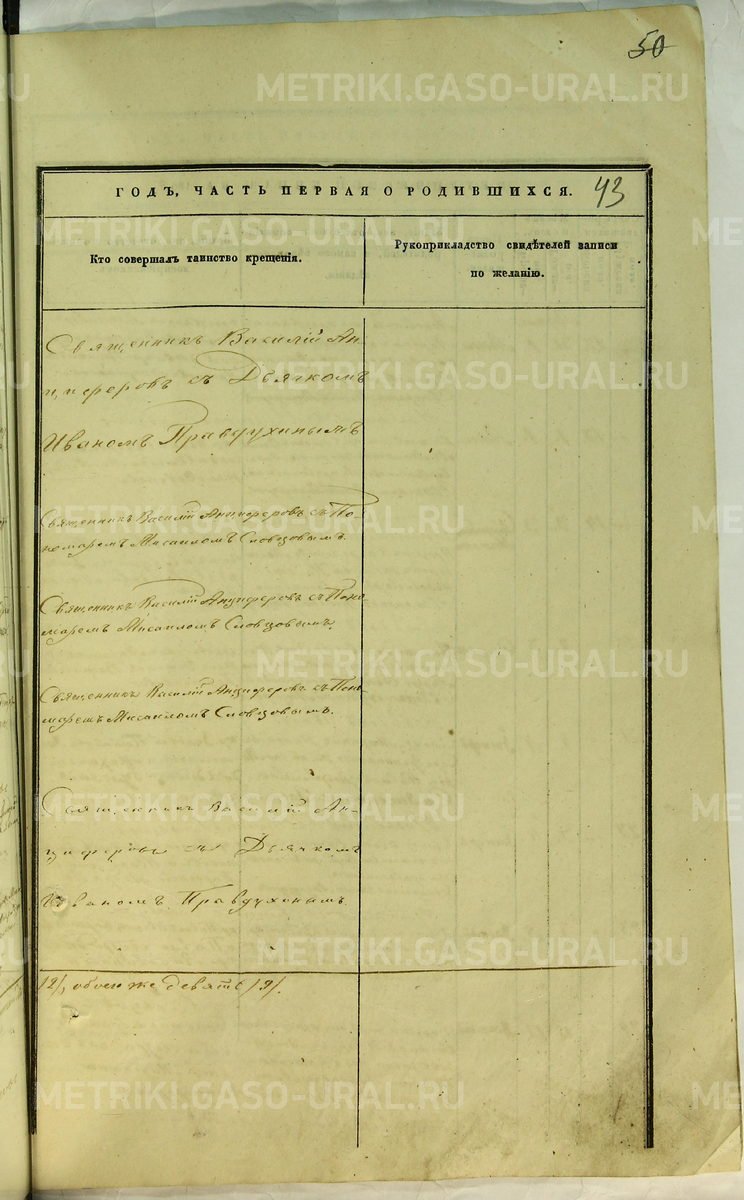 50
ГОДЪ, ЧАСТЬ ПЕРВАЯ О РОДИВШИХСЯ. 43
Кто совершалъ таинство крещенія.
Рукоприкладство свидѣтелей записи
по желанію.
Священникъ Василій Ан-
циферовъ съ Дьячкомъ
Иваномъ Правдухинымъ
Священникъ Василій Анциферовъ съ По-
номаремъ Мисаиломъ Словцовымъ.
Священникъ Василій Анциферовъ съ Поно-
маремъ Мисаиломъ Словцовымъ.
Священникъ Василій Анциферовъ съ Поно-
маремъ Мисаиломъ Словцовымъ.
Священникъ Василій Ан-
циферовъ съ Дьячкомъ
Иваномъ Правдухинымъ.
/2/, обоего же девять /9/.
METRIKI.GASO-URAL.RU